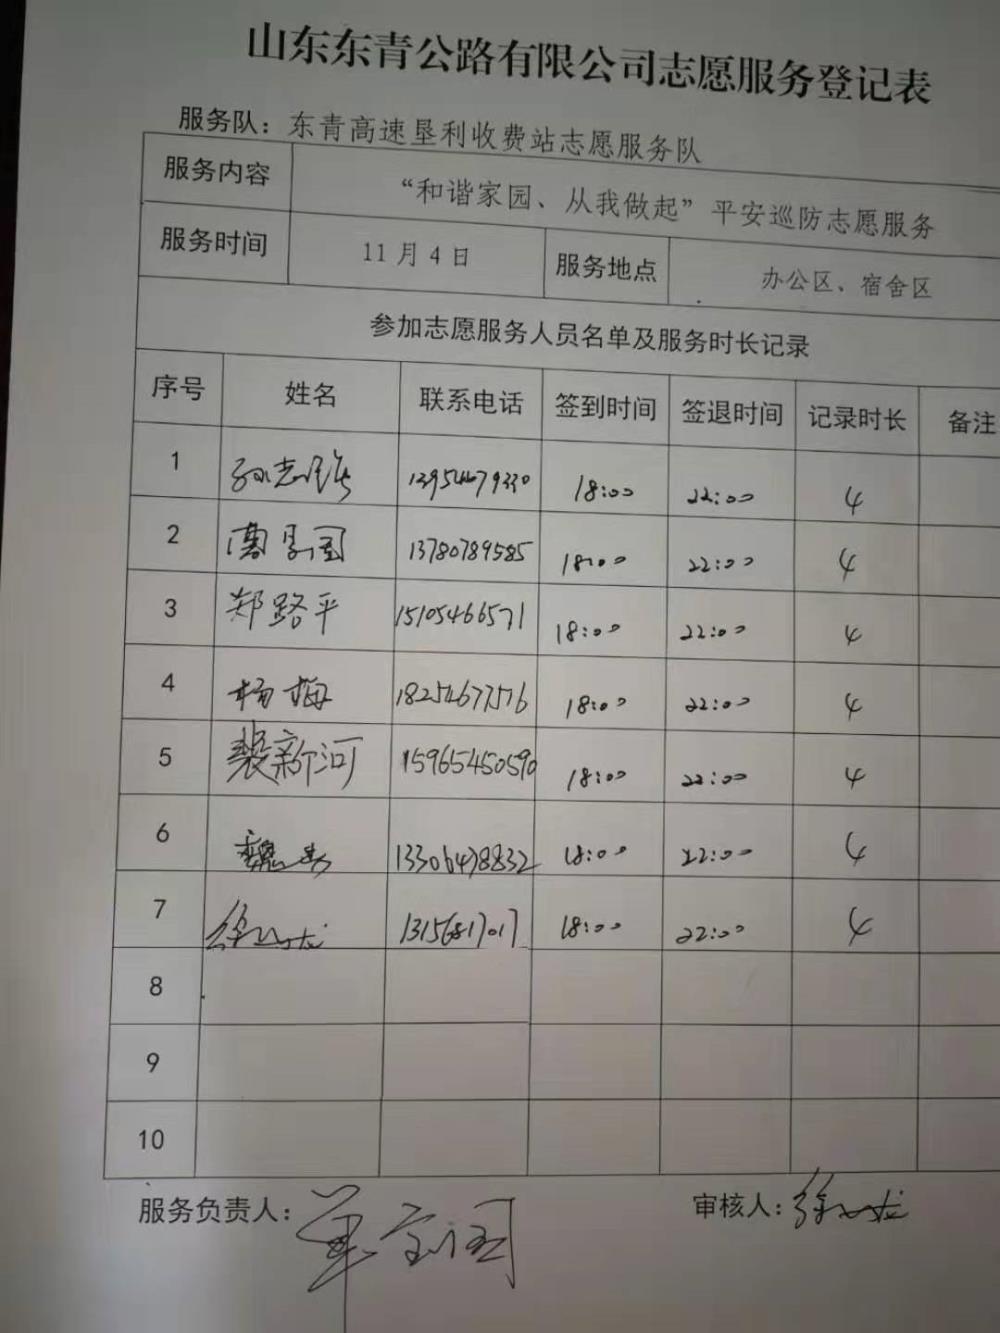 山东东青公路有限公司志愿服务登记表
服务队：东青高速垦利收费站志愿服务队
服务内容 “和谐家园、从我做起”平安巡防志愿服务
服务时间 11月4日 服务地点 办公区、宿舍区
参加志愿服务人员名单及服务时长记录
序号 姓名 联系电话 签到时间 签退时间 记录时长 备注
1 18:00 22:00 4
2 13780789585 18:00 22:00 4
3 郑路平 15105466571 18:00 22:00 4
4 杨梅 18254677576 18:00 22:00 4
5 裴新河 15965450590 18:00 22:00 4
6 13306478832 18:00 22:00 4
7 18:00 22:00 4
8
9
10
服务负责人： 审核人：